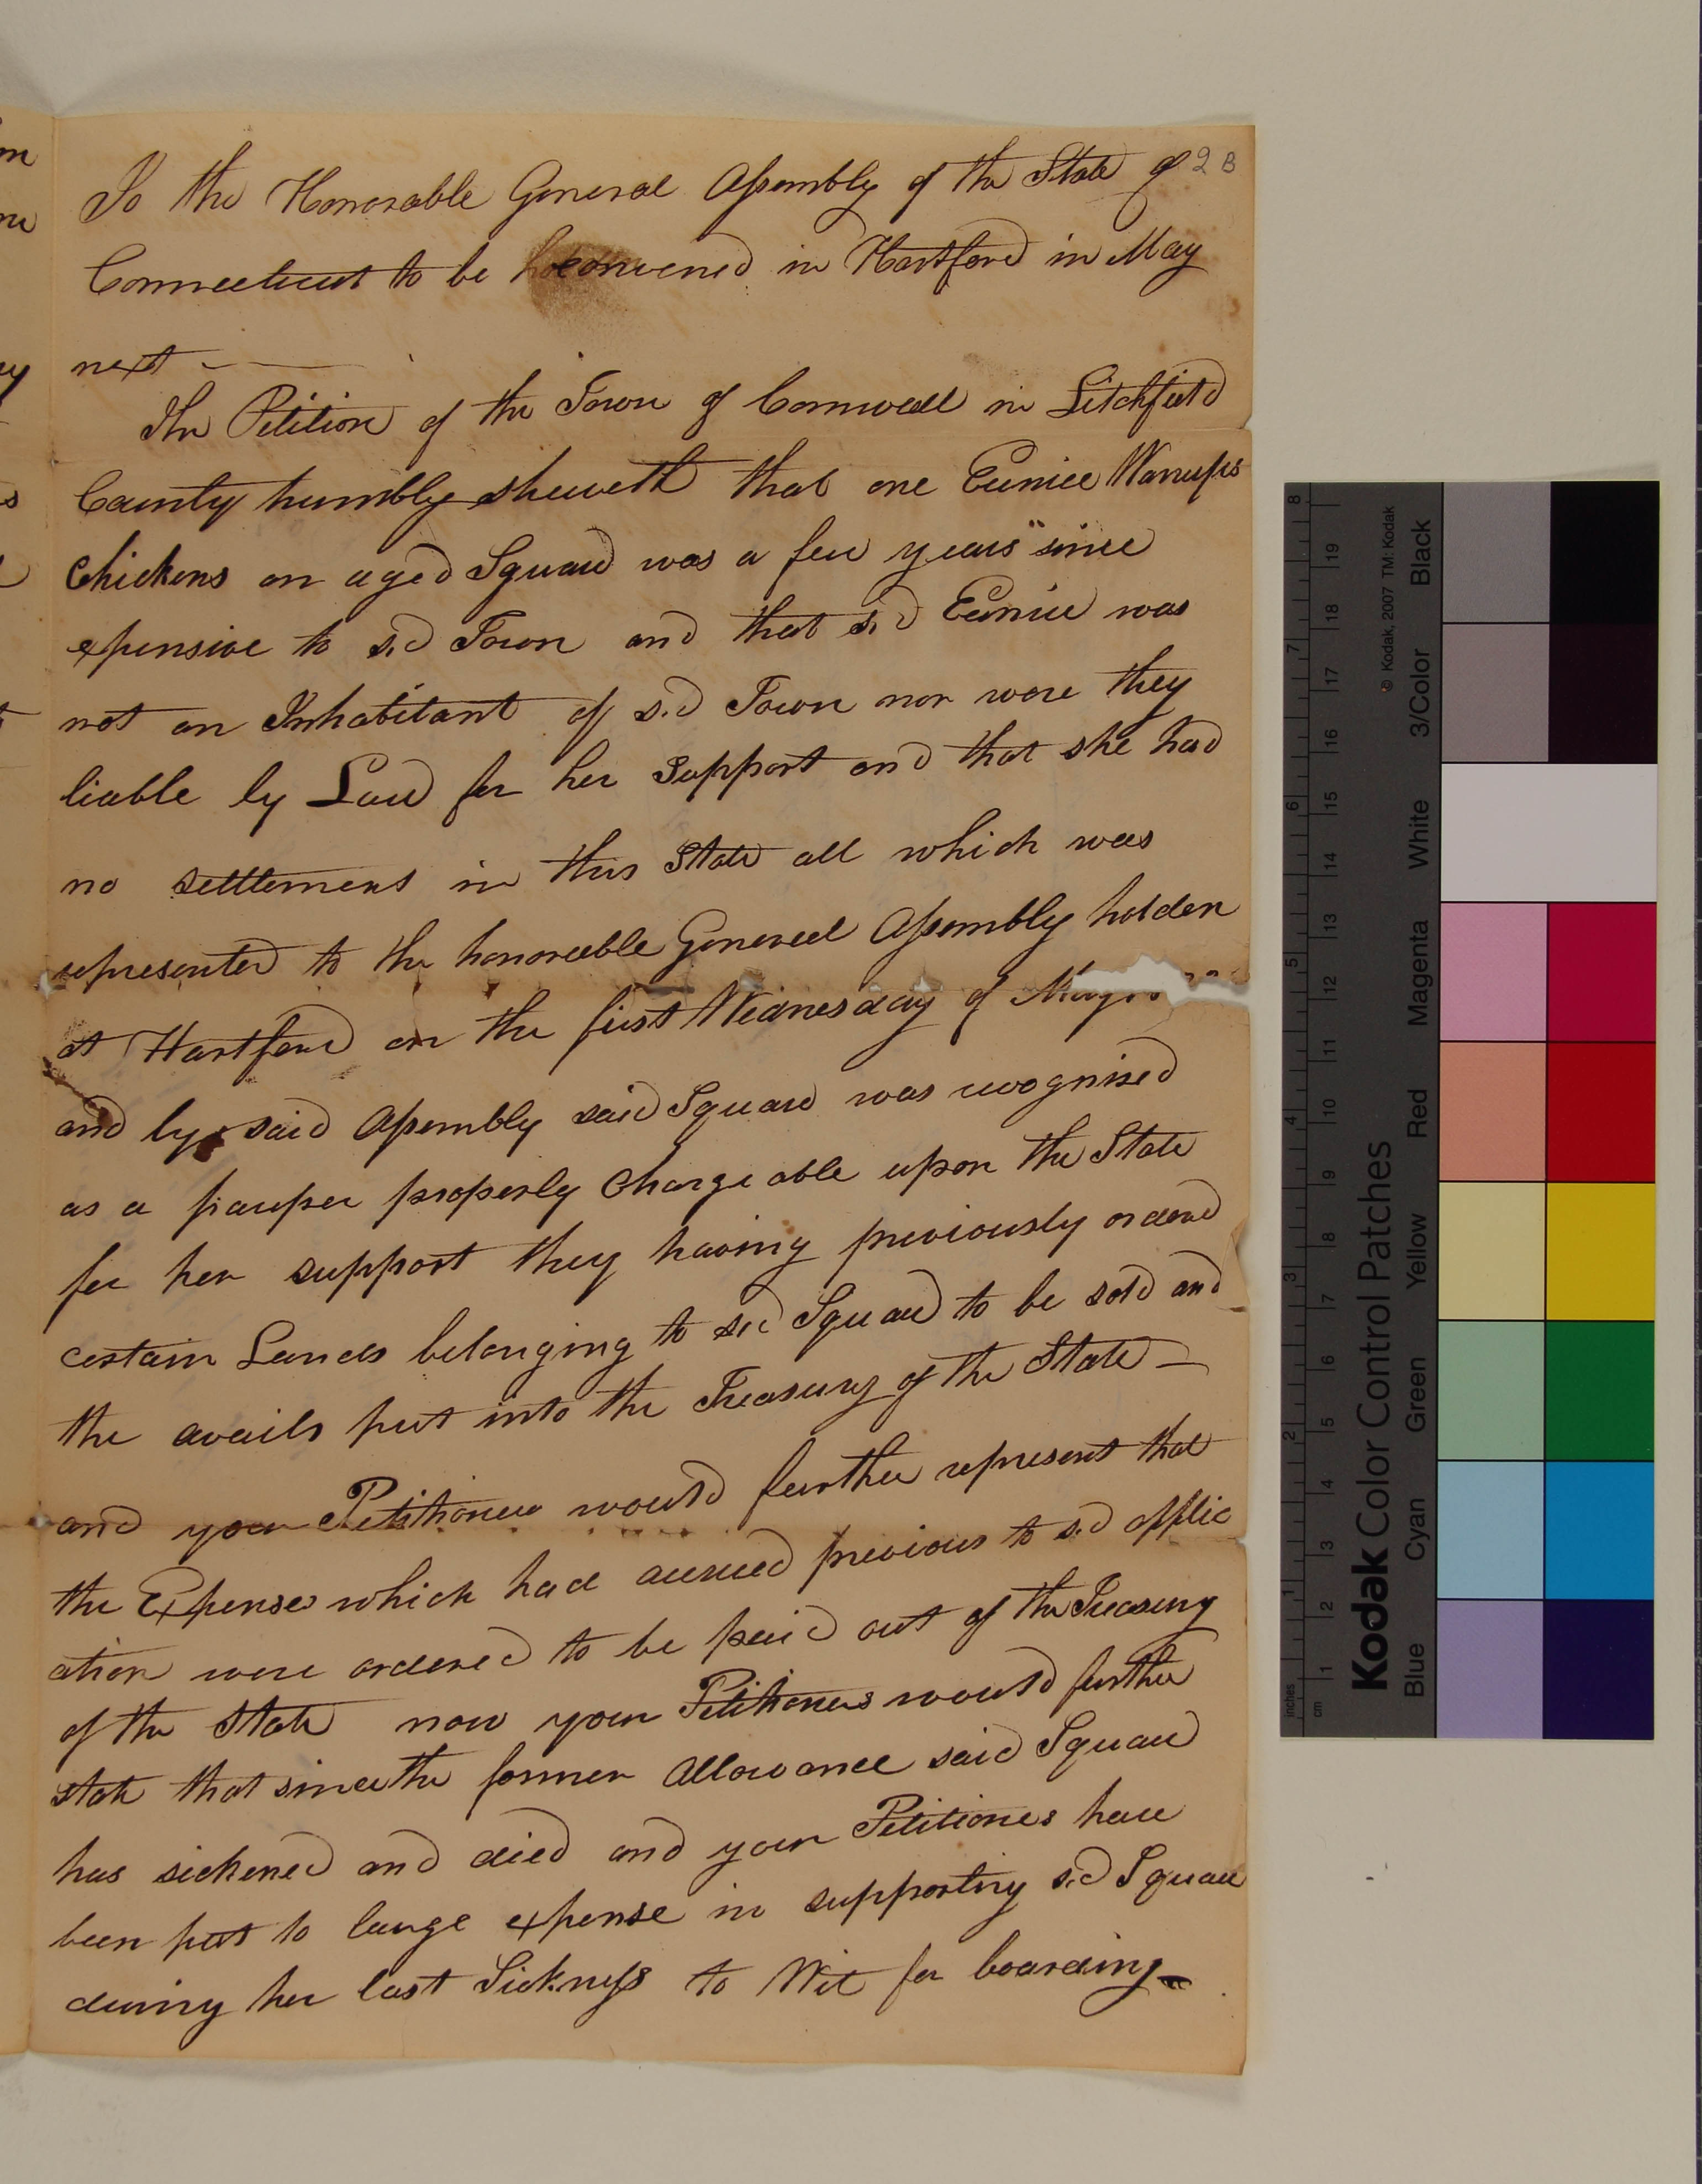 To the Honorable General Assembly of the State of 2 B
Connecticut to be convened in Hartford in May
next
The Petition of the Town of Cornwall in Litchfield
County humbly sheweth that one Eunice Warrups
Chickens an aged Squaw was a few years since
expensive to s.d Town and that s.d Eunice was
not an Inhabitant of s.d Town nor were they
liable by Law for her Support and that she had
no settlement in this State all which was
represented to the honorable General Assembly holden
at Hartford on the first Wednesday of May
and by said Assembly said Squaw was recognised
as a pauper properly Chargeable upon the State
for her support they having previously ordered
certain Lands belonging to s.d Squaw to be sold and
the avails put into the Treasury of the State
and your Petitioners would further represent that
the Expenses which had accrued previous to s.d applic
ation were ordered to be paid out of the Treasury
of the State now your Petitioners would further
state that since the former Allowance said Squaw
has sickened and died and your Petitioners have
been put to large expense in supporting s.d Squaw
during her last Sickness to Wit for boarding
Kodak Color Control Patches
© Kodak, 2007 TM: Kodak
Blue Cyan Green Yellow Red Magenta White 3/Color Black
inches 1 2 3 4 5 6 7 8
cm 1 2 3 4 5 6 7 8 9 10 11 12 13 14 15 16 17 18 19